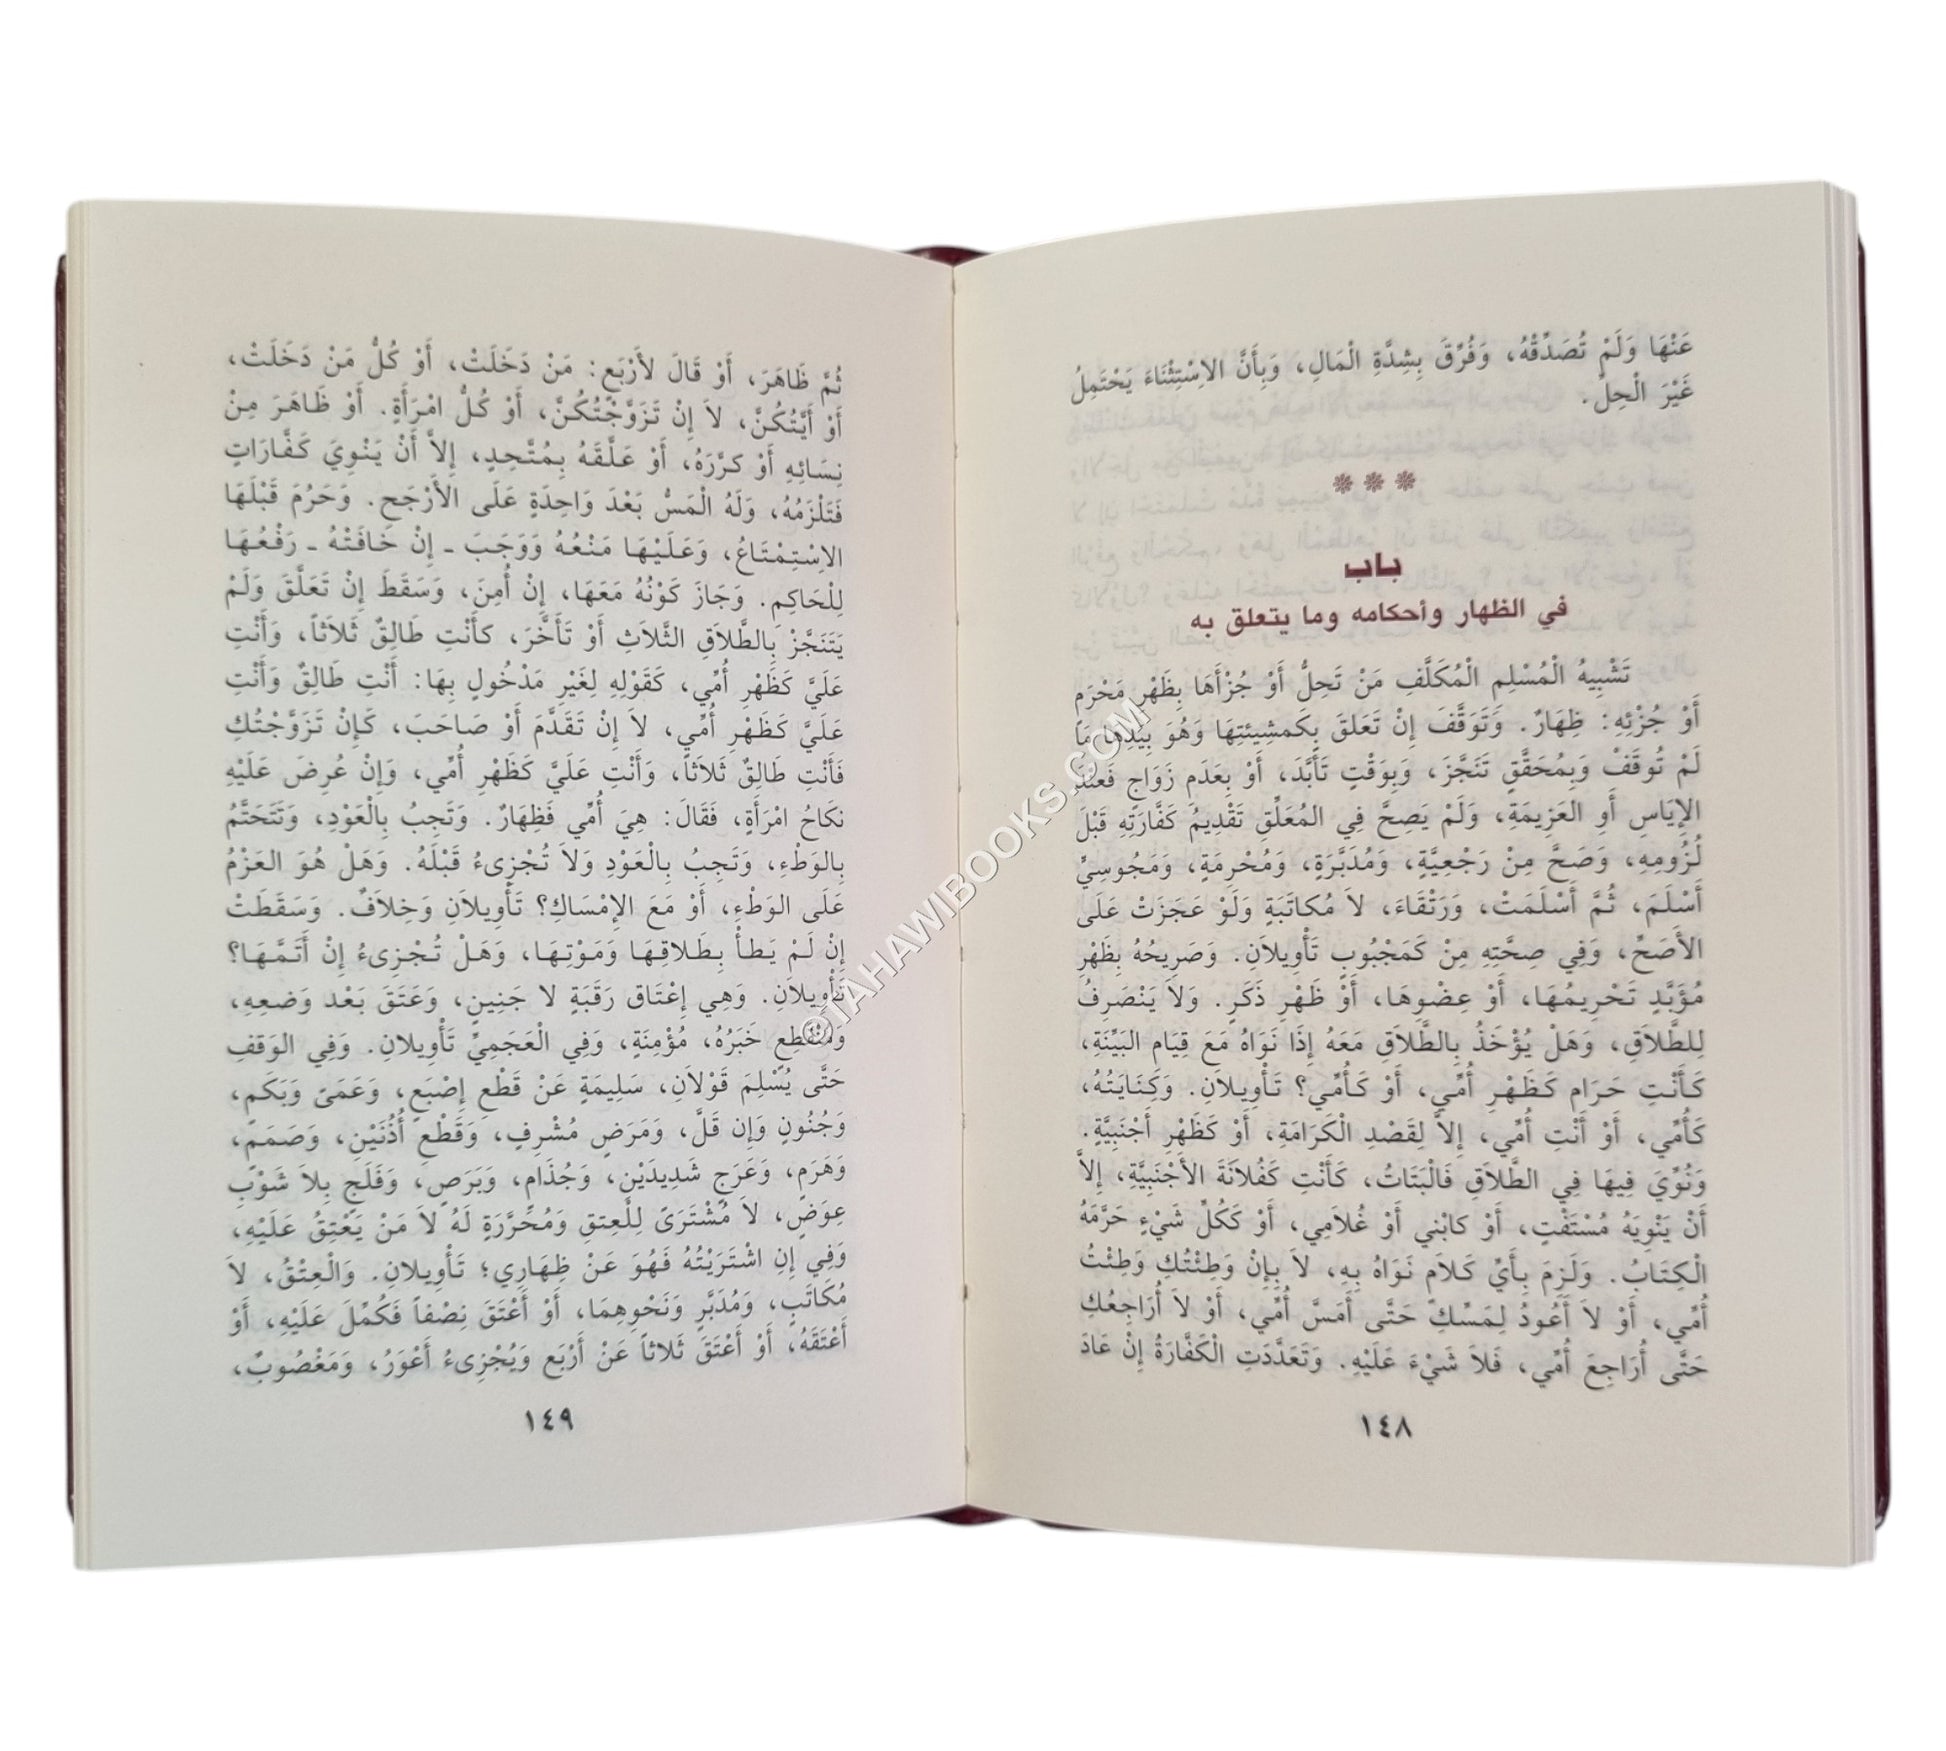 عَنْهَا وَلَمْ تُصَدِّقْهُ، وَفُرِّقَ بِشِدَّةِ الْمَالِ، وَبِأَنَّ الاِسْتِثْنَاءَ يَحْتَمِلُ
غَيْرَ الْحِلِّ.
❊ ❊ ❊
باب
في الظهار وأحكامه وما يتعلق به
تَشْبِيهُ الْمُسْلِمِ الْمُكَلَّفِ مَنْ تَحِلُّ أَوْ جُزْأَهَا بِظَهْرِ مَحْرَمٍ
أَوْ جُزْئِهِ: ظِهَارٌ. وَتَوَقَّفَ إِنْ تَعَلَّقَ بِكَمشِيئتِهَا وَهُوَ بِيَدِهَا مَا
لَمْ تُوقَفْ وَبِمُحَقَّقٍ تَنَجَّزَ، وَبِوَقْتٍ تَأَبَّدَ، أَوْ بِعَدَمِ زَوَاجٍ فَعِنْدَ
الإِيَاسِ أَوِ العَزِيمَةِ، وَلَمْ يَصِحَّ فِي المُعَلَّقِ تَقْدِيمُ كَفَّارَتِهِ قَبْلَ
لُزُومِهِ، وَصَحَّ مِنْ رَجْعِيَّةٍ، وَمُدَبَّرَةٍ، وَمُحْرِمَةٍ، وَمَجُوسِيٍّ
أَسْلَمَ، ثُمَّ أَسْلَمَتْ، وَرَتْقَاءَ، لاَ مُكاتَبَةٍ وَلَوْ عَجَزَتْ عَلَى
الأَصَحِّ، وَفِي صِحَّتِهِ مِنْ كَمَجْبُوبٍ تَأْوِيلاَنِ. وَصَرِيحُهُ بِظَهْرِ
مُؤَبَّدٍ تَحْرِيمُهَا، أَوْ عِضْوِهَا، أَوْ ظَهْرِ ذَكَرٍ. وَلاَ يَنْصَرِفُ
لِلطَّلاَقِ، وَهَلْ يُؤْخَذُ بِالطَّلاَقِ مَعَهُ إِذَا نَوَاهُ مَعَ قِيَامِ البَيِّنَةِ،
كَأَنْتِ حَرَام كَظَهْرِ أُمِّي، أَوْ كَأُمِّي؟ تَأْوِيلاَنِ. وَكِنَايَتُهُ،
كَأُمِّي، أَوْ أَنْتِ أُمِّي، إِلاَّ لِقَصْدِ الْكَرَامَةِ، أَوْ كَظَهْرِ أَجْنَبِيَّةٍ.
وَنُوِّيَ فِيهَا فِي الطَّلاَقِ فَالْبَتَاتُ، كَأَنْتِ كَفُلاَنَةَ الأَجْنَبِيَّةِ، إِلاَّ
أَنْ يَنْوِيَهُ مُسْتَفْتٍ، أَوْ كابْني أَوْ غُلاَمِي، أَوْ كَكُلِّ شَيْءٍ حَرَّمَهُ
الْكِتَابُ. وَلَزِمَ بِأَيِّ كَلاَمٍ نَوَاهُ بِهِ، لاَ بِإِنْ وَطِئْتُكِ وَطِئْتُ
أُمِّي، أَوْ لاَ أَعُودُ لِمَسِّكِ حَتَّى أَمَسَّ أُمِّي، أَوْ لاَ أُرَاجِعُكِ
حَتَّى أُرَاجِعَ أُمِّي، فَلاَ شَيْءَ عَلَيْهِ. وَتَعَدَّدَتِ الْكَفَّارَةُ إِنْ عَادَ
١٤٨
ثُمَّ ظَاهَرَ، أَوْ قَالَ لأَرْبَعٍ: مَنْ دَخَلَتْ، أَوْ كُلُّ مَنْ دَخَلَتْ،
أَوْ أَيَّتُكُنَّ، لاَ إِنْ تَزَوَّجْتُكُنَّ، أَوْ كُلُّ امْرَأَةٍ. أَوْ ظَاهَرَ مِنْ
نِسَائِهِ أَوْ كرَّرَهُ، أَوْ عَلَّقَهُ بِمُتَّحِدٍ، إِلاَّ أَنْ يَنْوِيَ كَفَّارَاتٍ
فَتَلْزَمُهُ، وَلَهُ الْمَسُّ بَعْدَ وَاحِدَةٍ عَلَى الأَرْجَحِ. وَحَرُمَ قَبْلَهَا
الاِسْتِمْتَاعُ، وَعَلَيْهَا مَنْعُهُ وَوَجَبَ ـ إِنْ خَافَتْهُ ـ رَفْعُهَا
لِلْحَاكِمِ. وَجَازَ كَوْنُهُ مَعَهَا، إِنْ أُمِنَ، وَسَقَطَ إِنْ تَعَلَّقَ وَلَمْ
يَتَنَجَّزْ بِالطَّلاَقِ الثَّلاَثِ أَوْ تَأَخَّرَ، كأَنْتِ طَالِقٌ ثَلاَثاً، وَأَنْتِ
عَلَيَّ كَظَهْرِ أُمِّي، كَقَوْلِهِ لِغَيْرِ مَدْخُولٍ بِهَا: أَنْتِ طَالِقٌ وَأَنْتِ
عَلَيَّ كَظَهْرِ أُمِّي، لاَ إِنْ تَقَدَّمَ أَوْ صَاحَبَ، كَإِنْ تَزَوَّجْتُكِ
فَأَنْتِ طَالِقٌ ثَلاَثاً، وَأَنْتِ عَلَيَّ كَظَهْرِ أُمِّي، وَإِنْ عُرِضَ عَلَيْهِ
نكَاحُ امْرَأَةٍ، فَقَالَ: هِيَ أُمِّي فَظِهَارٌ. وَتَجِبُ بِالْعَوْدِ، وَتَتَحَتَّمُ
بِالوَطْءِ، وَتَجِبُ بِالْعَوْدِ وَلاَ تُجْزِىءُ قَبْلَهُ. وَهَلْ هُوَ العَزْمُ
عَلَى الوَطْءِ، أَوْ مَعَ الإِمْسَاكِ؟ تَأْوِيلاَنِ وَخِلاَفٌ. وَسَقَطَتْ
إِنْ لَمْ يَطأْ بِطَلاَقِهَا وَمَوْتِهَا، وَهَلْ تُجْزِىءُ إِنْ أَتَمَّهَا؟
تَأْوِيلاَنِ. وَهِي إِعْتَاق رَقَبَةٍ لا جَنِينٍ، وَعَتَقَ بَعْد وَضعِهِ،
وَمُنْقَطِعٍ خَبَرُهُ، مُؤْمِنَةٍ، وَفِي الْعَجَمِيِّ تَأْوِيلانِ. وَفِي الوَقفِ
حَتَّى يُسْلِمَ قَوْلاَنِ، سَلِيمَةٍ عَنْ قَطْعِ إِصْبَعٍ، وَعَمَىً وَبَكَمٍ،
وَجُنُونٍ وَإِن قَلَّ، وَمَرَضٍ مُشْرِفٍ، وَقَطْعِ أُذُنَيْنِ، وَصَمَمٍ،
وَهَرَمٍ، وَعَرَجٍ شَدِيدَيْنِ، وَجُذَامٍ، وَبَرَصٍ، وَفَلَجٍ بِلاَ شَوْبِ
عِوَضٍ، لاَ مُشْتَرَىً لِلْعِتقِ وَمُحَرَّرَةٍ لَهُ لاَ مَنْ يَعْتِقُ عَلَيْهِ،
وَفِي إِنِ اشْتَرَيْتُهُ فَهُوَ عَنْ ظِهَارِي؛ تَأْوِيلانِ. وَالْعِتْقُ، لاَ
مُكَاتَبٍ، وَمُدَبَّرٍ وَنَحْوِهِمَا، أَوْ أَعْتَقَ نِصْفاً فَكُمِّلَ عَلَيْهِ، أَوْ
أَعْتَقَهُ، أَوْ أَعْتَقَ ثَلاثاً عَنْ أَرْبَعٍ وَيُجْزِىءُ أَعْوَرُ، وَمَغْصُوبٌ،
١٤٩
©TAHAWIBOOKS.COM